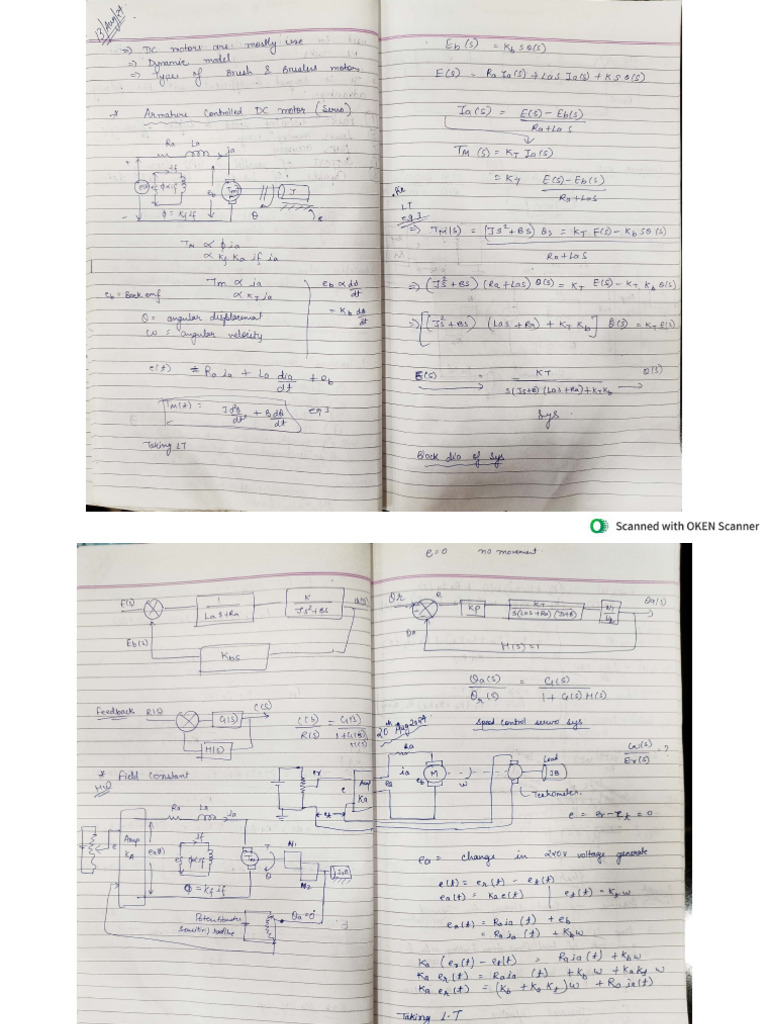 13/Aug/24
⇒ DC motors are mostly use
⇒ Dynamic model
⇒ Types of Brush & Brusless motors
* Armature Controlled DC motor (Servo)
Ra La ia
If
eb
Tm
J
θ
φ = Kf if
TM ∝ φ ia
∝ Kf Ka if ia
Tm ∝ ia
∝ KT ia
eb = Back emf
eb ∝ dθ/dt
= Kb dθ/dt
θ = angular displacement
ω = angular velocity
e(t) = Ra ia + La dia/dt + eb
TM(t) = Jd²θ/dt² + B dθ/dt eq 1
Taking LT
Eb(s) = Kb sθ(s)
E(s) = Ra Ia(s) + Las Ia(s) + KSθ(s)
Ia(s) = E(s) − Eb(s) / Ra + Las
TM(s) = KT Ia(s)
= KT E(s) − Eb(s) / Ra + Las
LT
eq 1
⇒ TM(s) = (Js² + Bs) θs = KT E(s) − Kb sθ(s) / Ra + Las
⇒ (Js² + Bs) (Ra + Las) θ(s) = KT E(s) − KT Kb θ(s)
⇒ [(Js² + Bs) (Las + Ra) + KT Kb] θ(s) = KT E(s)
E(s) → KT / s(Js+B)(Las+Ra)+KTKb → θ(s)
Sys
Block dia of Sys
Scanned with OKEN Scanner
e = 0 no movement
E(s) 1 / Las + Ra K / Js² + Bs θ(s)
Eb(s)
Kbs
Feedback R(s) G(s) C(s)
H(s)
C(s)/R(s) = G(s) / 1 + G(s)H(s)
* Field Constant
Ra La ia
Amp KA
e
ea(t)
If
Tm
θ
N1
N2
φ = Kf if
Potentiometer
θa = 0
θr e KP KT / s(Las+Ra)(Js+B) N1 / N2 θa(s)
θa
H(s) = 1
θa(s) / θr(s) = G(s) / 1 + G(s) H(s)
20th Aug 2024
Speed control servo sys
Ra
er
e
Amp Ka
ea
ia
eb
M
ω
Load
JB
← et →
Techometer
ω(s) / Er(s) = ?
e = er − et = 0
ea = change in zero voltage generate
e(t) = er(t) − et(t)
ea(t) = Ka e(t)
et(t) = Kt ω
ea(t) = Ra ia(t) + eb
= Ra ia(t) + Kb ω
Ka (er(t) − et(t)) = Ra ia(t) + Kb ω
Ka er(t) = Ra ia (t) + Kb ω + Ka Kt ω
Ka er(t) = (Kb + Ka Kt) ω + Ra ia(t)
Taking L.T